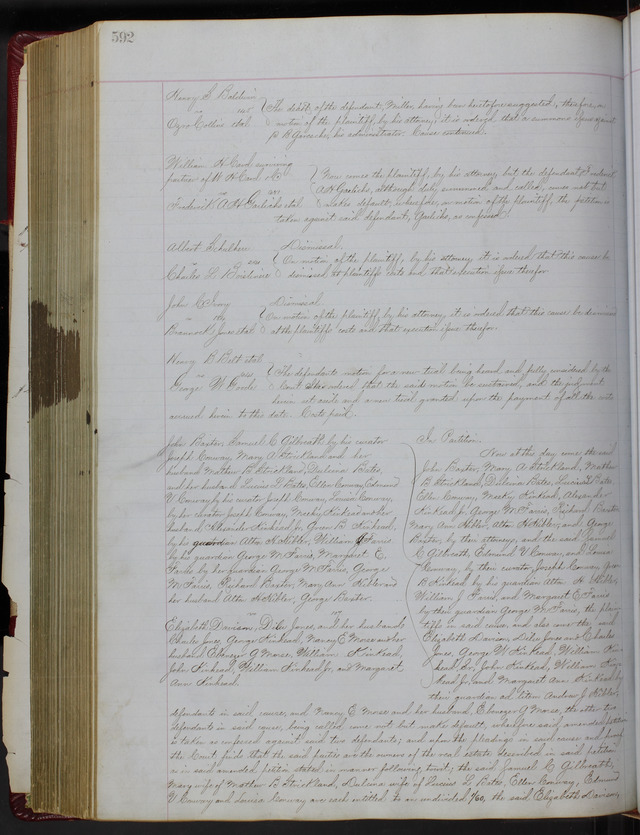 592
Henry S. Baldwin
vs
Ogro Collins etal
The death of the defendant, Miller, having been heretofore suggested, therefore, on
motion of the plaintiff, by his attorney, it is ordered that a summons issue against
his administrator. Cause continued.
William H Card surviving
partner of W H Card & Co
vs
Frederick A H Garlichs etal
Now comes the plaintiff, by his attorney, but the defendant Frederick
A H Garlichs, although duly summoned and called, comes not but
makes default, wherefore, on motion of the plaintiff, the petition is
taken against said defendant, Garlichs, as confessed.
Albert
vs
Charles L
Dismissal.
On motion of the plaintiff, by his attorney, it is ordered that this cause be
dismissed at plaintiffs costs and that execution issue therefor.
John C Ivory
vs
Brannock Jones etal
Dismissal
On motion of the plaintiff, by his attorney, it is ordered that this cause be dismissed
at the plaintiffs costs and that execution issue therefor.
Henry B Belt etal
vs
George W
The defendants motion for a new trial being heard and fully considered by the
Court it is ordered that the said motion be sustained, and the judgment
herein set aside and a new trial granted upon the payment of all the costs
accrued herein to this date. Costs paid.
John Baxter, Samuel C Gilbreath by his curator
Joseph Conway, Mary A Strickland and her
husband Mather B Strickland, Dulcina Bates,
and her husband Lucius L Bates, Ellen Conway, Edmund
V Conway by his curator Joseph Conway, Louisa Conway,
by her curator Joseph Conway, Meekey Kinkead and her
husband Alexander Kinkead, jr, Green B Kinkead,
by his guardian Alten H Hibler, William J Farris
by his guardian George M Farris, Margaret E.
Farris by her guardian George M Farris, George
M Farris, Richard Baxter, Mary Ann Hibler and
her husband Alten H Hibler, George Baxter.
vs
Elizabeth Davison, Delia Jones, and her husband
Charles Jones, George Kinkead, Nancy E Morse and her
husband Ebenezer G Morse, William Kinkead,
John Kinkead, William Kinkead jr, and Margaret
Ann Kinkead.
In Partition.
Now at this day comes the said
John Baxter, Mary A Strickland, Mather
B Strickland, Dulcina Bates, Lucius L Bates,
Ellen Conway, Meekey Kinkead, Alexander
Kinkead jr, George M Farris, Richard Baxter,
Mary Ann Hibler, Alten H Hibler, and George
Baxter, by their attorney, and the said Samuel
C Gilbreath, Edmund V Conway, and Louisa
Conway, by their curator, Joseph Conway, Green
B Kinkead by his guardian Alten H Hibler,
William J Farris, and Margaret E Farris
by their guardian George M Farris, the plain-
tiffs in said cause, and also come the said
Elizabeth Davison, Delia Jones and Charles
Jones, George Kinkead, William Kin-
kead, Sr, John Kinkead, William Kin-
kead Jr, and Margaret Ann Kinkead by
their guardian ad litem Andrew J Hibler,
defendants in said cause, and Nancy E Morse and her husband, Ebenezer G Morse, the other two
defendants in said cause, being called come not but make default, wherefore said amended petition
is taken as confessed against said two defendants; and upon the pleadings in said cause and proof
the Court finds that the said parties are the owners of the real estate described in said petition
as in said amended petition stated in manner following, to wit, the said Samuel C Gilbreath,
Mary wife of Mather B Strickland, Dulcina wife of Lucius L Bates, Ellen Conway, Edmund
V Conway and Louisa Conway are each entitled to an undivided 1/60, the said Elizabeth Davison,